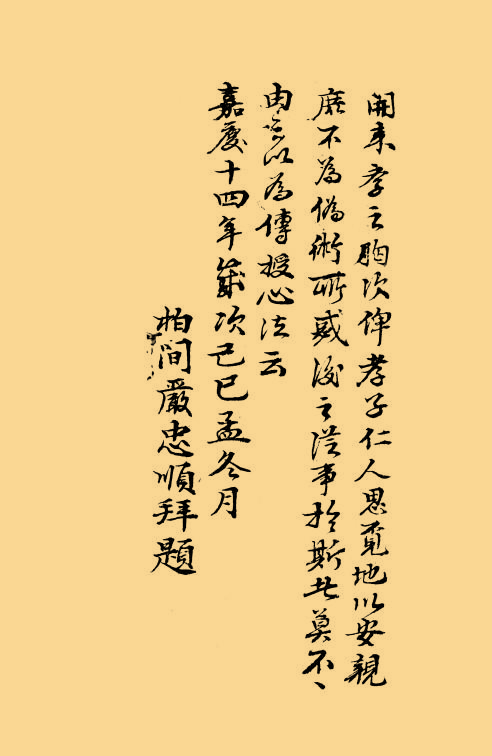 開来孝之胸次俾孝子仁人思覓地以安親
庶不為偽術所惑後之從事於斯者莫不、
由是以為傳授心法云
嘉慶十四年歲次己巳孟冬月
柏間嚴忠順拜題